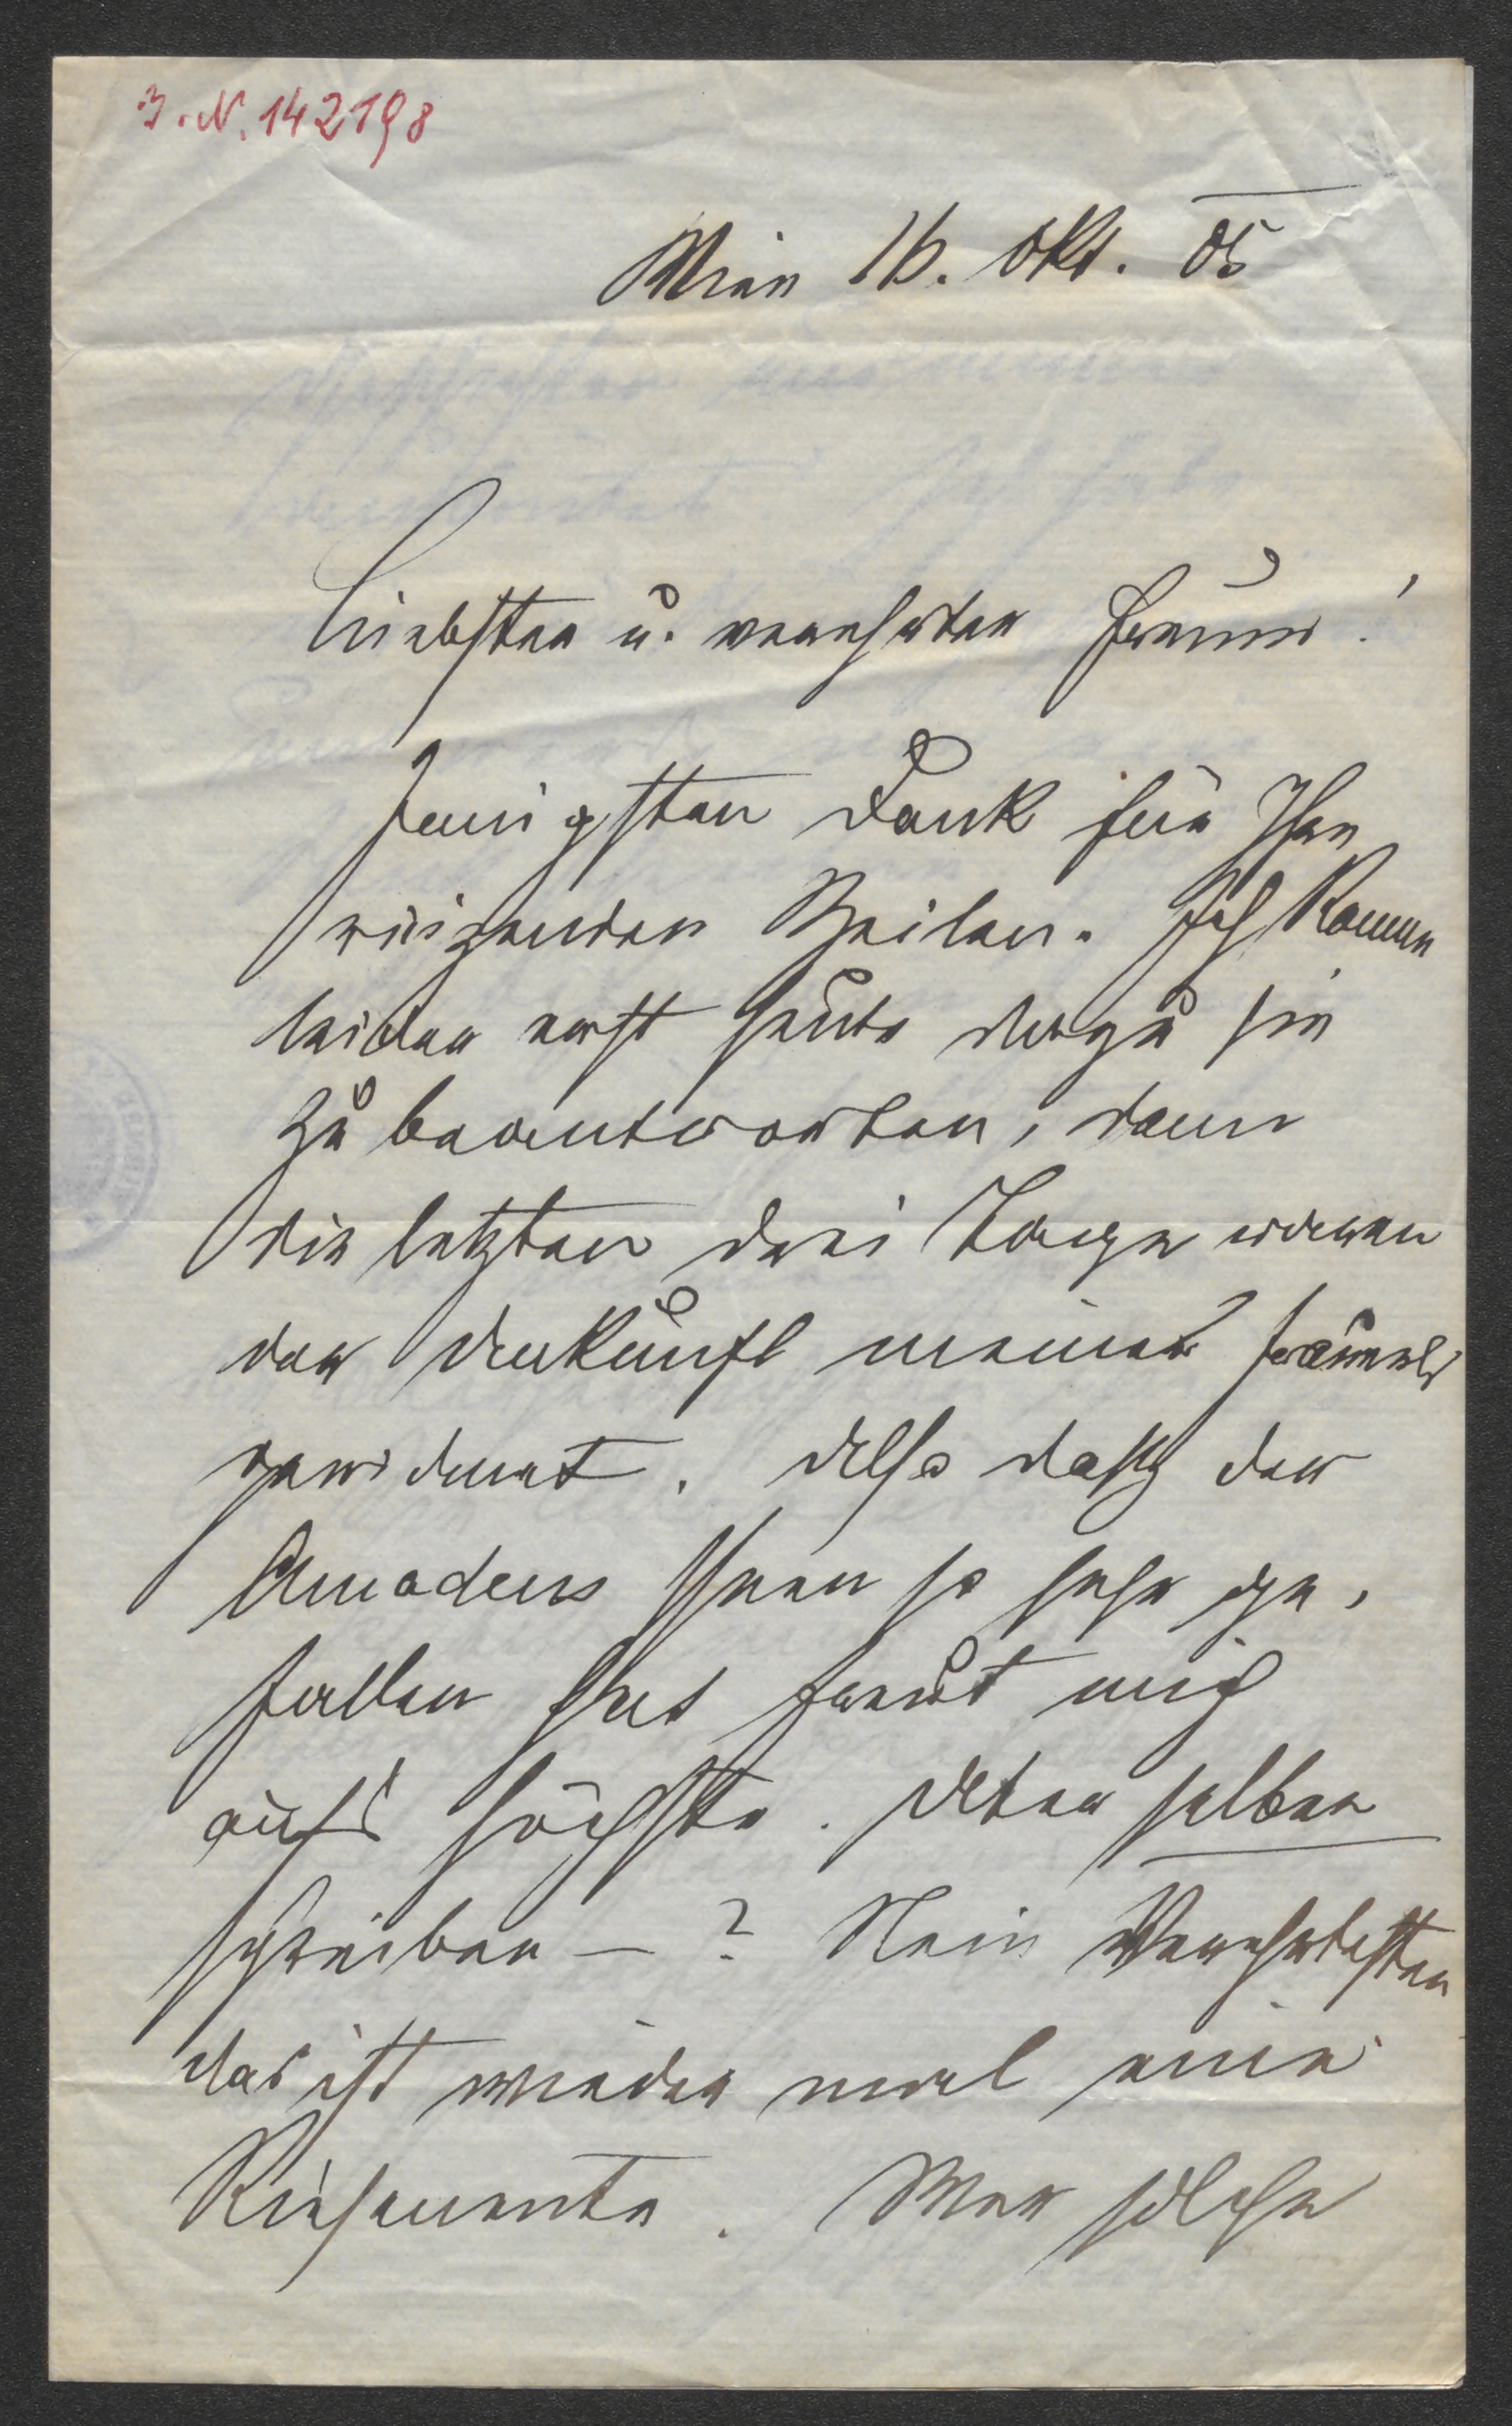 I. N. 142198
Wien 16. Okt. 05
Liebster u. verehrter Freund!
Innigsten Dank für Ihre
reizenden Zeilen. Ich komme
leider erst heute dazu sie
zu beantworten, denn
die letzten drei Tage waren
der Ankunft meiner
gewidmet. Also dass der
Amadeus Ihnen so sehr ge-
fallen hat freut mich
aufs höchste. Aber selber
schreiben – ? Nein Verehrtester
das ist wieder mal eine
Riesenente. Wer solche